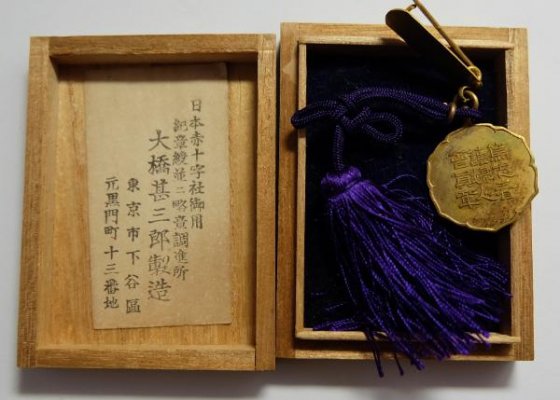 日本赤十字社御用
記章綬並ニ略章調進所
大橋甚三郎製造
東京市下谷區
元黒門町十三番地